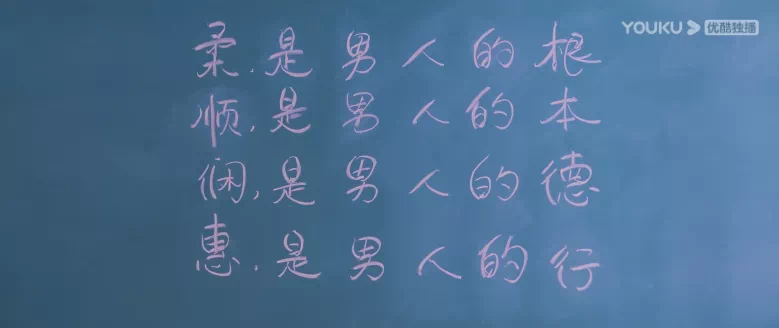 YOUKU 优酷独播
柔,是男人的根
顺,是男人的本
侽,是男人的德
惠,是男人的行